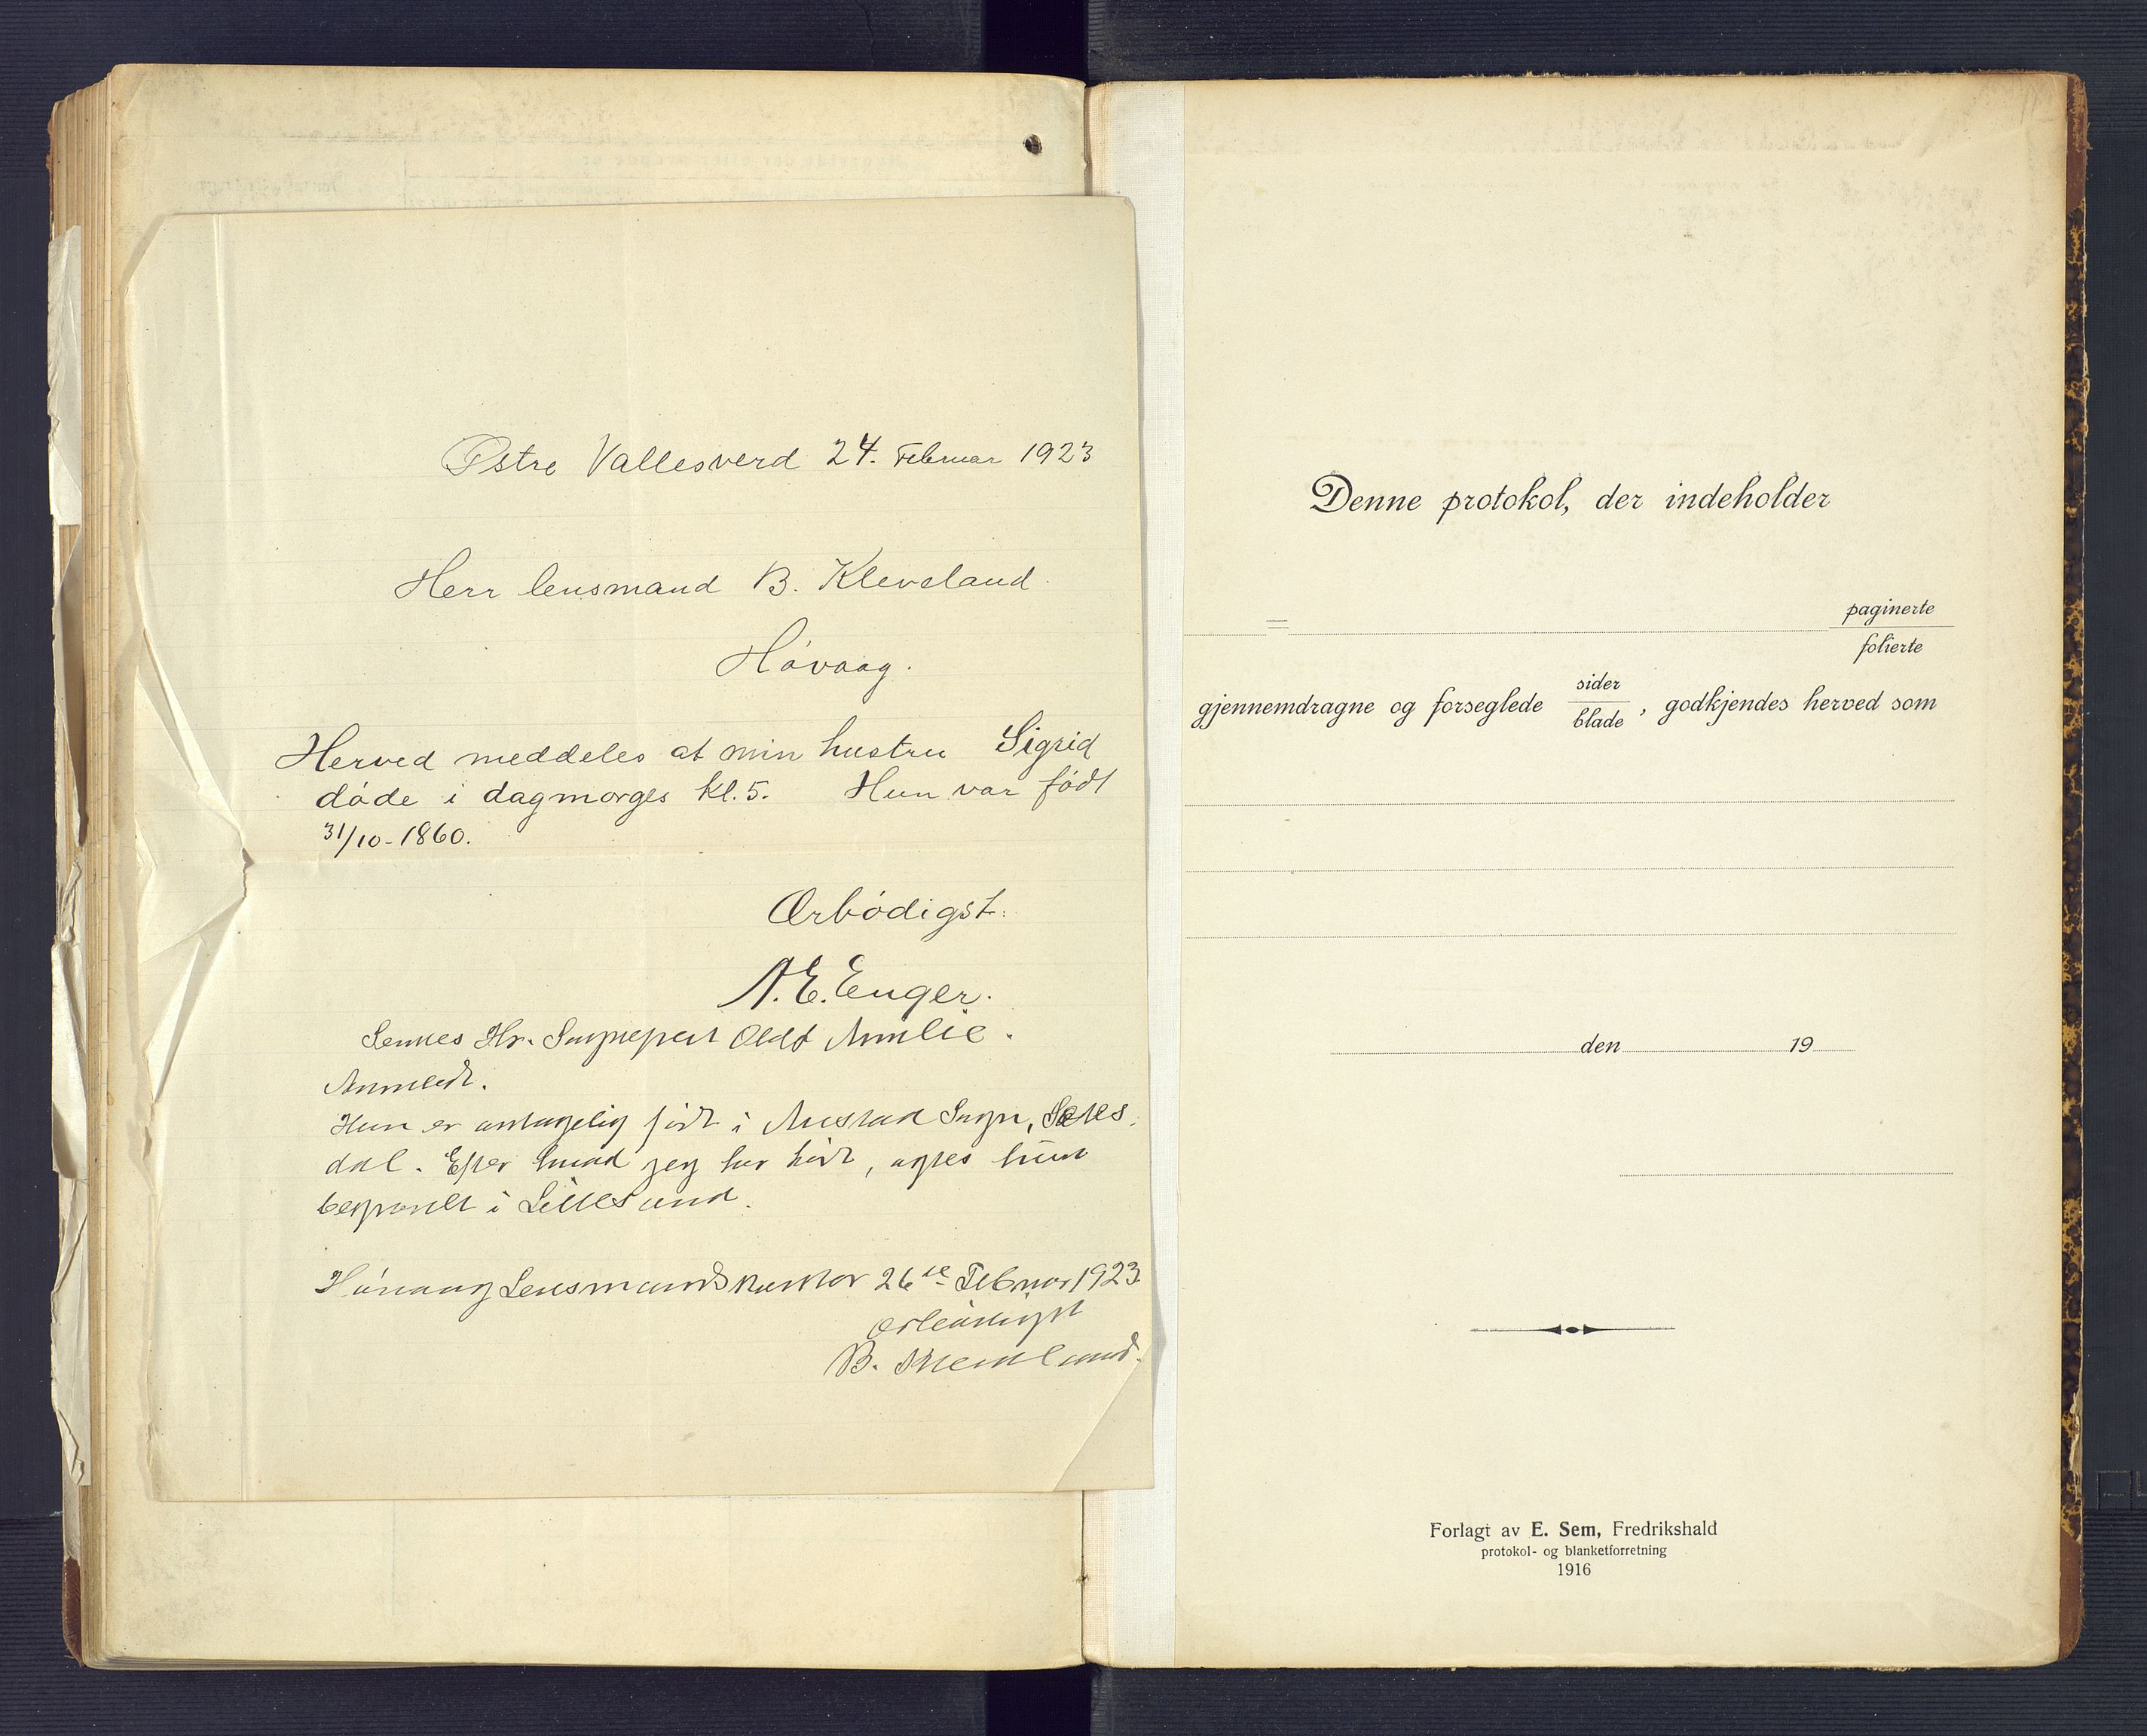 Østre Vallesverd 24. Februar 1923
Herr lensmand B. Kleveland.
Høvaag.
Herved meddeles at min hustru Sigrid
døde i dagmorges kl. 5. Hun var født
31/10-1860.
Ærbødigst:
A. E. Enger.
Sendes Hr. Sogneprest Oldt
Anmeldt.
Hun er antagelig født i Austad Sogn, Sætes-
dal. Efter hvad jeg har hørt, agtes hun
begravet i Lillesand.
Høvaag Lensmandskontor 26de Februar 1923
ærbødigst
B. Kleveland.
Denne protokol, der indeholder
=
paginerte
folierte
gjennemdragne og forseglede sider
blade, godkjendes herved som
den 19
Forlagt av E. Sem, Fredrikshald
protokol- og blanketforretning
1916